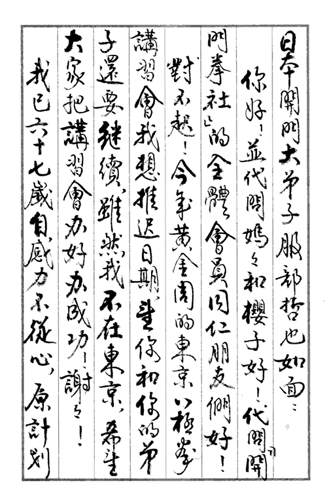 日本開門大弟子服部哲也如面：
你好！並代問媽々和櫻子好！代問「開
門拳社」的全體會員同仁朋友們好！
對不起！今年黃金周的東京八極拳
講習會我想推迟日期，望你和你的弟
子還要继續，雖然我不在東京，希望
大家把講習會办好办成功！謝々！
我已六十七嵗自感力不從心，原計划